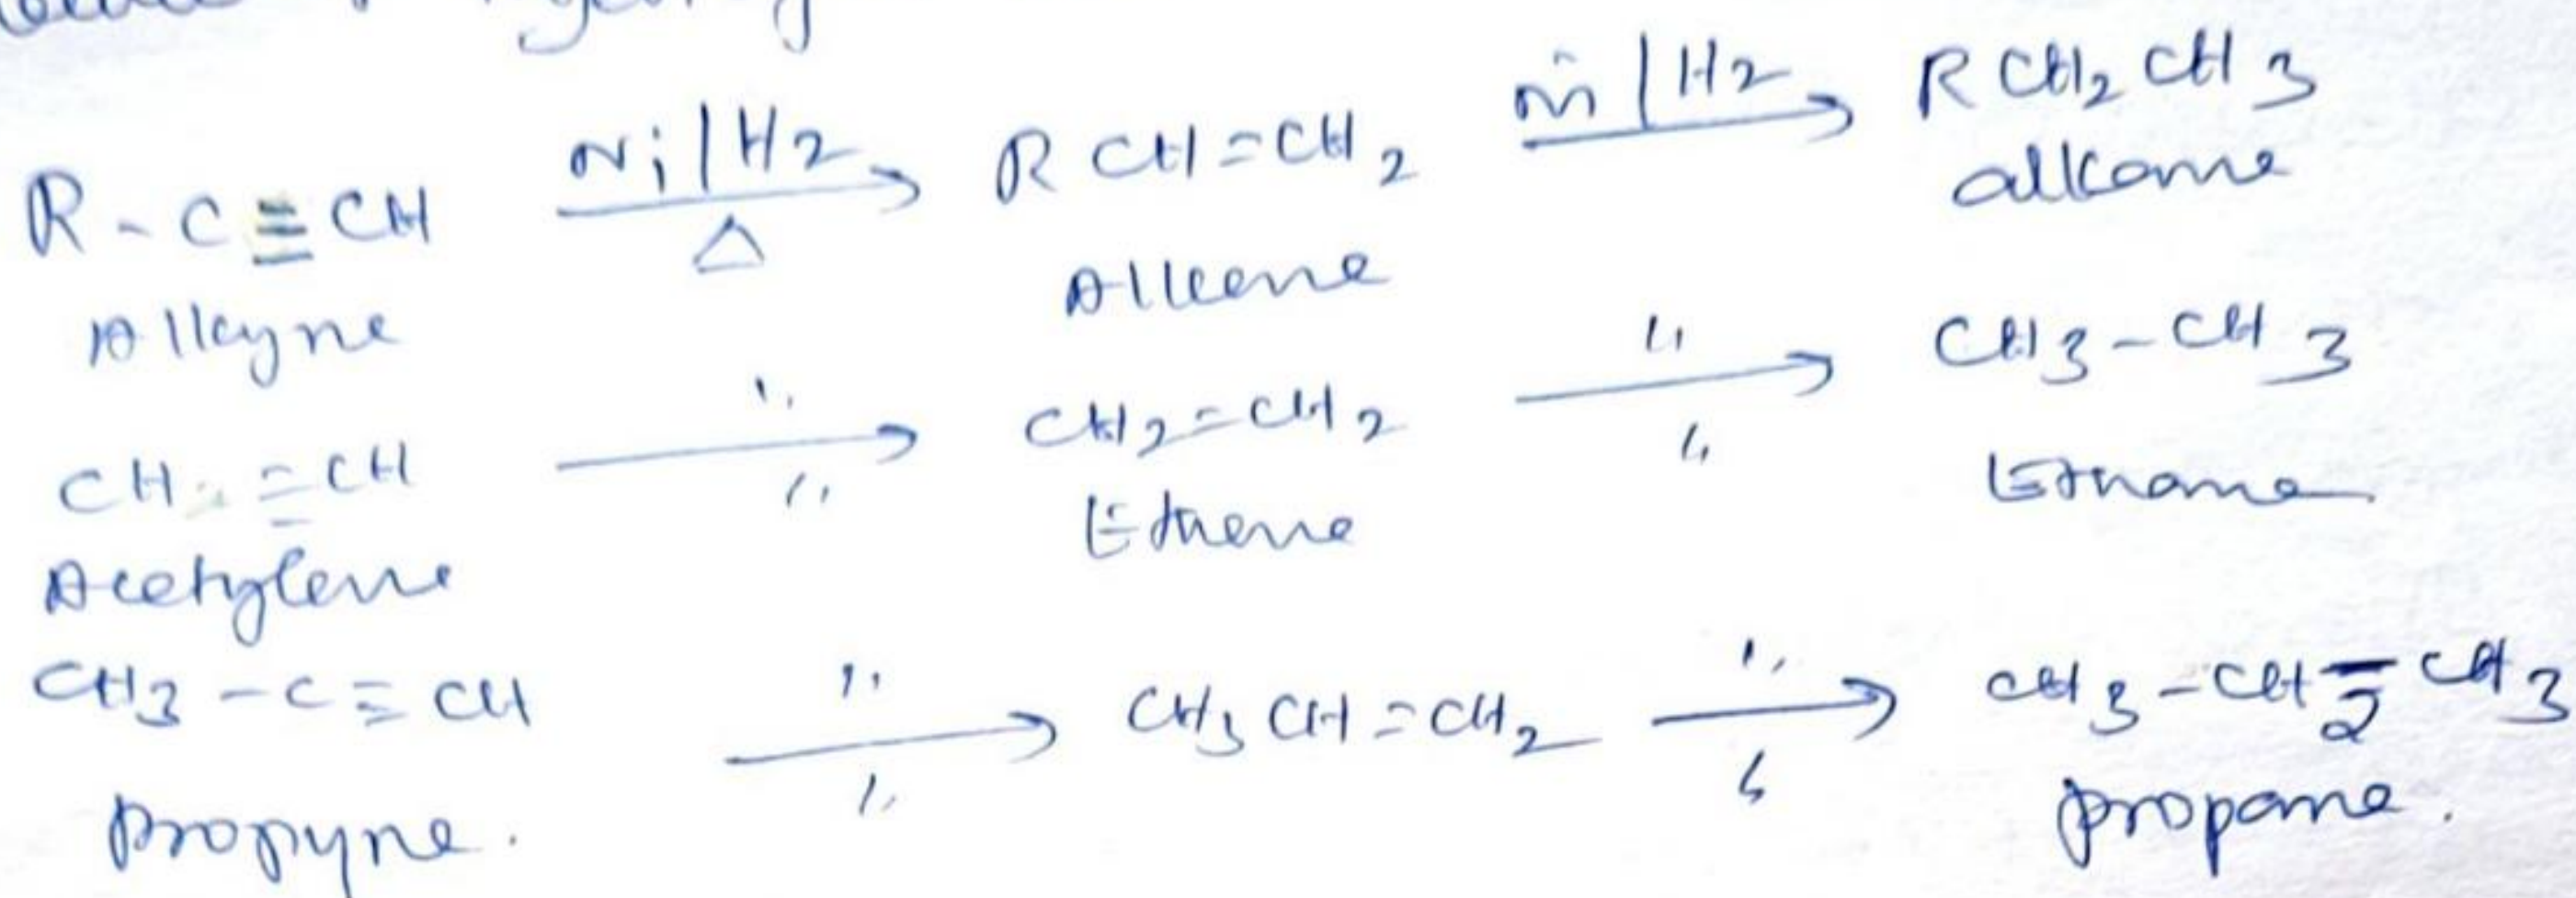 R - C ≡ CH Ni | H2 → Δ R CH = CH2 Ni | H2 → R CH2 CH3
Alkyne Alkene alkane
CH ≡ CH " → " CH2 = CH2 " → " CH3 - CH3
Acetylene Ethene Ethane
CH3 - C ≡ CH " → " CH3 CH = CH2 " → " CH3 - CH2 - CH3
propyne. propane.